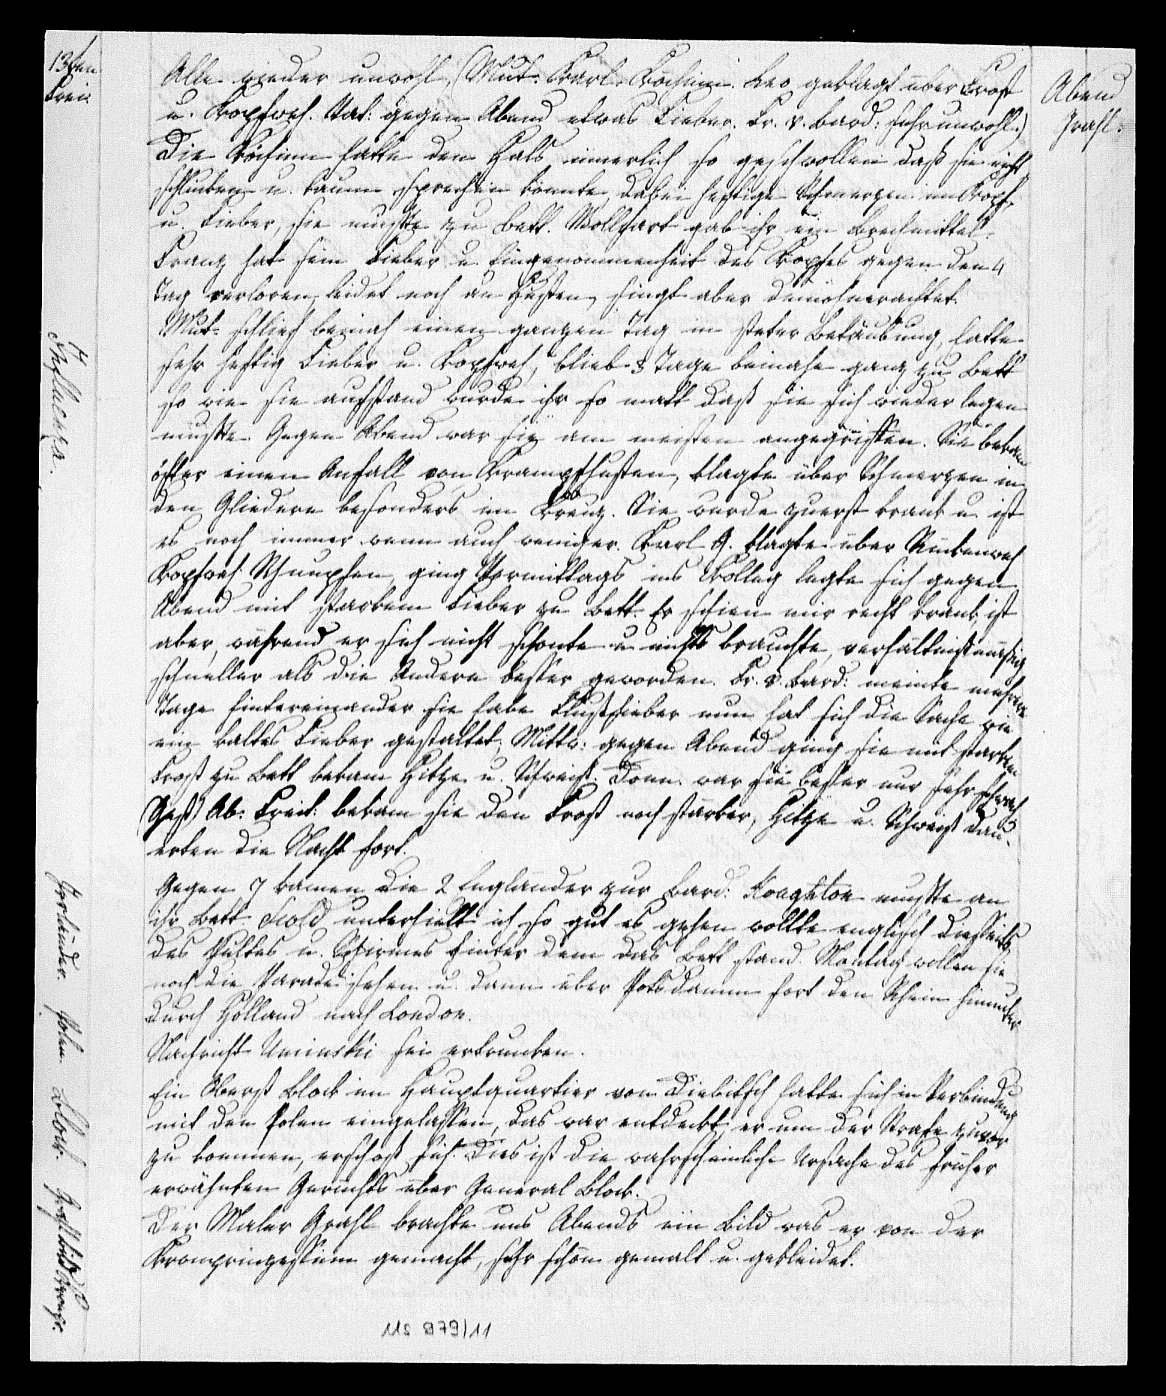 13ten
Frei.
Alle wieder unwohl, (Mut. Karl. Köchinn. Leo geklagt über Frost
u. Kopfweh. Nat: gegen Abend etwas Fieber. Fr. v. Bard: sehr unwohl.)
Die Köchinn hatte den Hals innerlich so geschwollen daß sie nicht
schlucken u. kaum sprechen konnte, dabei heftige Schmerzen im Kopf,
u. Fieber, sie mußte zu Bett. Wollfart gab ihr ein Brechmittel.
Franz hat sein Fieber u. Eingenommenheit des Kopfes gegen den 4
Tag verloren, leidet noch an Husten, singt aber demohnerachtet.
Mut. schlief beinah einen ganzen Tag in steter Betäubung, hatte
sehr heftig Fieber u. Kopfweh, blieb 3 Tage beinahe ganz zu Bett
so wie sie aufstand wurde ihr so matt daß sie sich wieder legen
mußte. Gegen Abend war sie am meisten angegriffen. Sie bekam
öfter einen Anfall von Krampfhusten, klagte über Schmerzen in
den Gliedern besonders im Kreuz. Sie wurde zuerst krank u. ist
es noch immer wenn auch weniger. Karl A. klagte über Rückenweh
Kopfweh Schnupfen, ging Vormittags ins Kolleg legte sich gegen
Abend mit starkem Fieber zu Bett. Er schien mir recht krank, ist
aber, während er sich nicht schonte u. nichts brauchte, verhältnißmäßig
schneller als die Andern besser geworden. Fr. v. Bard: meinte mehrere
Tage hintereinander sie habe Flußfieber nun hat sich die Sache wie
ein kaltes Fieber gestaltet. Mittw: gegen Abend ging sie mit starken
Frost zu Bett bekam Hitze u. Schweiß. Donn. war sie besser nur sehr schwach
Ab. Freit. bekam sie den Frost noch stärker, Hitze u. Schweiß dau-
erten die Nacht fort.
Gegen 7 kamen die 2 Engländer zur Bard: Hoaghton mußte an
ihr Bett unterhielt ich so gut es gehen wollte englisch diesseits
des Pultes u. Schirmes hinter dem das Bett stand. Montag wollen sie
noch die Parade sehen u. dann über Potsdamm fort den Rhein hinunter
durch Holland nach London.
Nachricht Uminski sei ertrunken.
Ein Oberst Block im Hauptquartier von Diebitsch hatte sich in Verbindung
mit den Polen eingelassen, das war entdeckt, er um der Strafe zuvor
zu kommen, erschoß sich. Dies ist die wahrscheinliche Ursache des früher
erwähnten Gerüchts über General Block.
Der Maler Grahl brachte uns Abends ein Bild was er von der
Kronprinzessinn gemacht, sehr schön gemalt u. gekleidet.
Abend
Grahl:
Influenza.
Engländer. Polen. Block. Grahl Bild Kronpr.